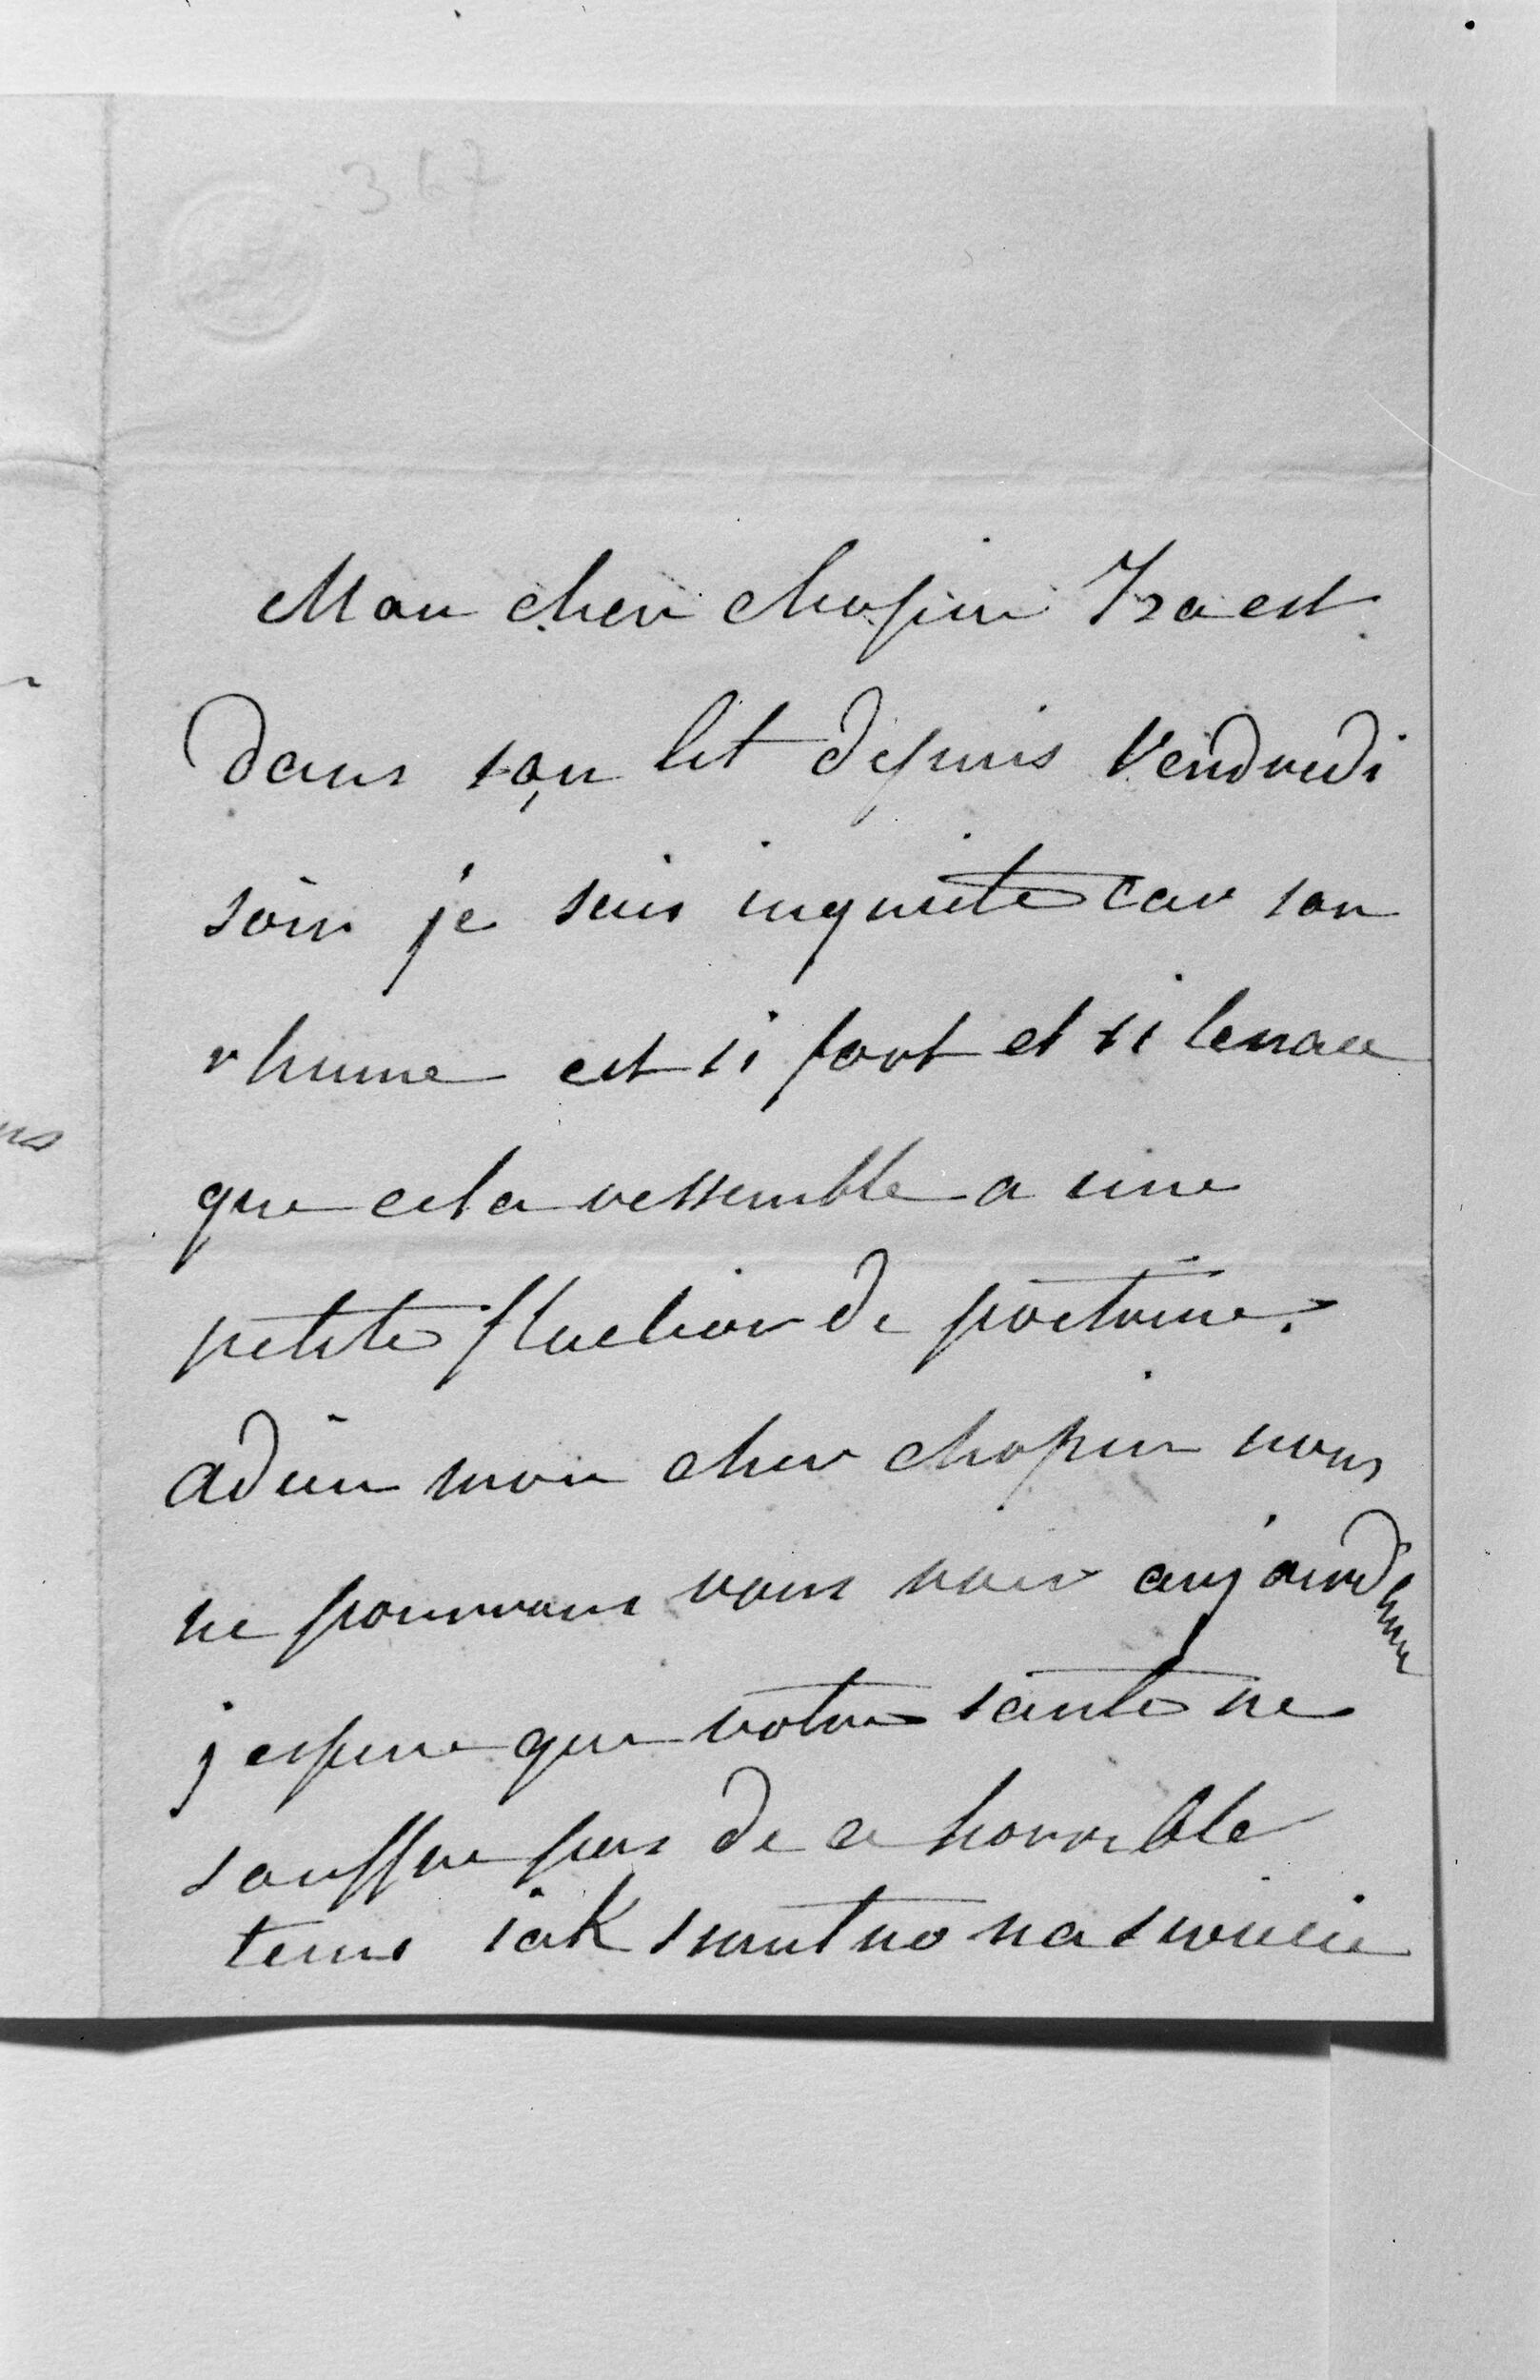 367
Mon cher chopin Iza est
dans son lit depuis Vendredi
soir je suis inquiete car son
rhume est si fort et si tenace
que cela ressemble a une
petite fluction de poitrine.
adieu mon cher chopin nous
ne pourrons vous voir aujourdhui
j espere que votre santé ne
souffre pas de ce horrible
tems iak smutno na swiecie